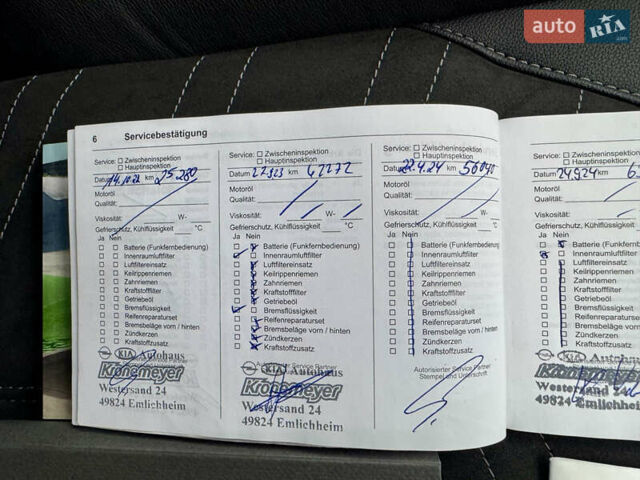 auto RIA .com
6 Servicebestätigung
Service: Zwischeninspektion
Hauptinspektion
Datum 14.10.22 km 25.280
Motoröl
Qualität:
Viskosität: W-
Gefrierschutz, Kühlflüssigkeit °C
Ja Nein
Batterie (Funkfernbedienung)
Innenraumluftfilter
Luftfiltereinsatz
Keilrippenriemen
Zahnriemen
Kraftstofffilter
Getriebeöl
Bremsflüssigkeit
Reifenreparaturset
Bremsbeläge vorn / hinten
Zündkerzen
Kraftstoffzusatz
KIA Autohaus
Kronemeyer
Westersand 24
49824 Emlichheim
Service: Zwischeninspektion
Hauptinspektion
Datum km
Motoröl
Qualität:
Viskosität: W-
Gefrierschutz, Kühlflüssigkeit °C
Ja Nein
Batterie (Funkfernbedienung)
Innenraumluftfilter
Luftfiltereinsatz
Keilrippenriemen
Zahnriemen
Kraftstofffilter
Getriebeöl
Bremsflüssigkeit
Reifenreparaturset
Bremsbeläge vorn / hinten
Zündkerzen
Kraftstoffzusatz
Service Partner
KIA Autohaus
Kronemeyer
Westersand 24
49824 Emlichheim
Service: Zwischeninspektion
Hauptinspektion
Datum 22.4.24 km 56040
Motoröl
Qualität:
Viskosität: W-
Gefrierschutz, Kühlflüssigkeit °C
Ja Nein
Batterie (Funkfernbedienung)
Innenraumluftfilter
Luftfiltereinsatz
Keilrippenriemen
Zahnriemen
Kraftstofffilter
Getriebeöl
Bremsflüssigkeit
Reifenreparaturset
Bremsbeläge vorn / hinten
Zündkerzen
Kraftstoffzusatz
Autorisierter Service Partner
Stempel und Unterschrift
Service: Zwischeninspektion
Hauptinspektion
Datum 24.9.24 km
Motoröl
Qualität:
Viskosität:
Gefrierschutz, Kühlflüssigkeit
Ja Nein
Batterie (Funkfern
Innenraumluftfilter
Luftfiltereinsatz
Keilrippenriemen
Zahnriemen
Kraftstofffilter
Getriebeöl
Bremsflüssigkeit
Reifenreparaturset
Bremsbeläge vorn
Zündkerzen
Kraftstoffzusatz
KIA Autohaus
Westersand 24
49824 Emlichheim